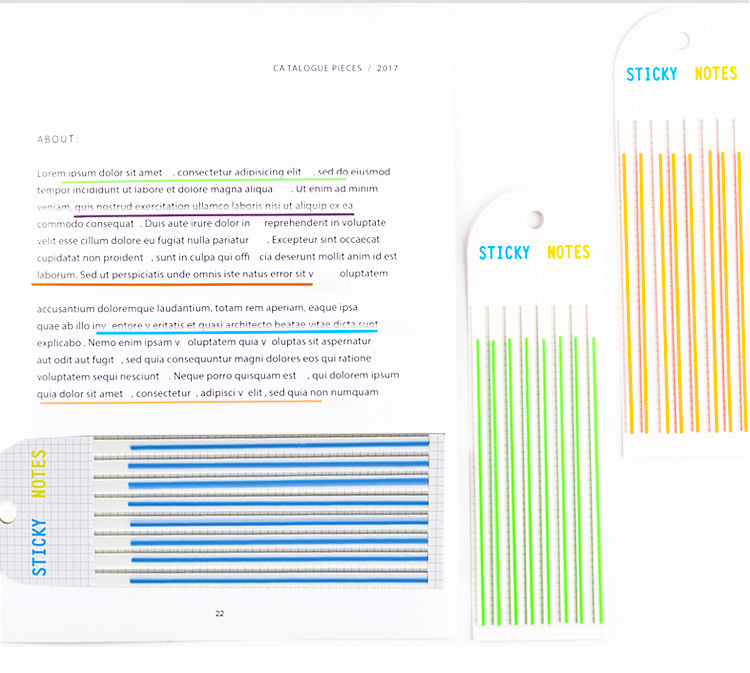 CATALOGUE PIECES / 2017
ABOUT:
Lorem ipsum dolor sit amet , consectetur adipisicing elit , sed do eiusmod
tempor incididunt ut labore et dolore magna aliqua . Ut enim ad minim
veniam, quis nostrud exercitation ullamco laboris nisi ut aliquip ex ea
commodo consequat . Duis aute irure dolor in reprehenderit in voluptate
velit esse cillum dolore eu fugiat nulla pariatur . Excepteur sint occaecat
cupidatat non proident , sunt in culpa qui offi cia deserunt mollit anim id est
laborum. Sed ut perspiciatis unde omnis iste natus error sit v oluptatem
accusantium doloremque laudantium, totam rem aperiam, eaque ipsa
quae ab illo inv entore v eritatis et quasi architecto beatae vitae dicta sunt
explicabo . Nemo enim ipsam v oluptatem quia v oluptas sit aspernatur
aut odit aut fugit , sed quia consequuntur magni dolores eos qui ratione
voluptatem sequi nesciunt . Neque porro quisquam est , qui dolorem ipsum
quia dolor sit amet , consectetur , adipisci v elit, sed quia non numquam
STICKY NOTES
22
STICKY NOTES
STICKY NOTES